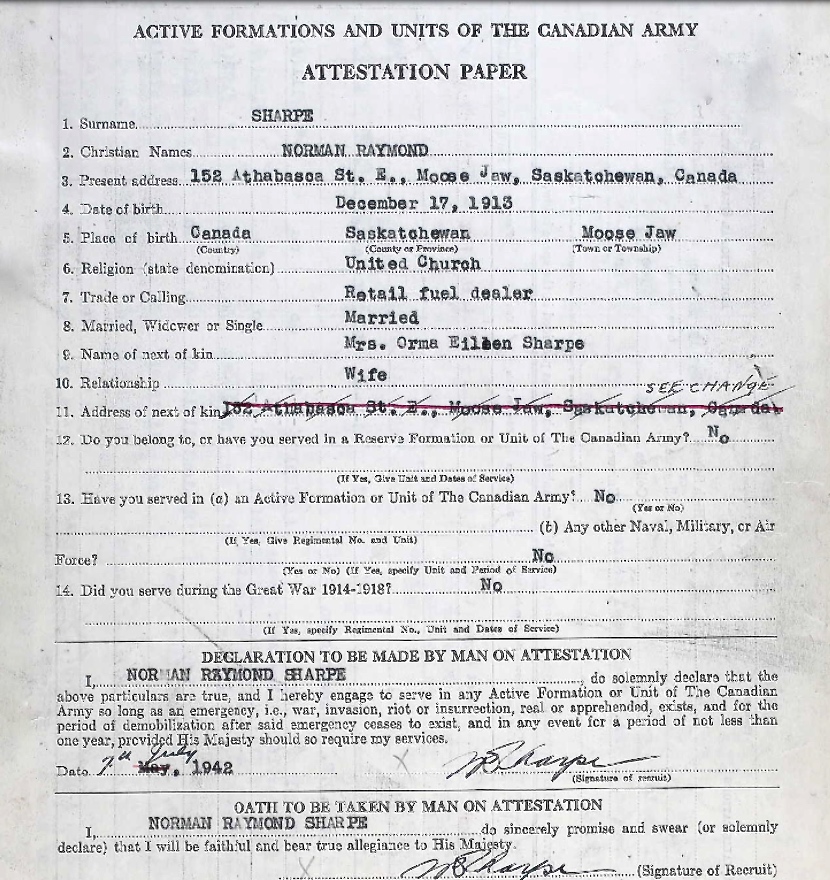 ACTIVE FORMATIONS AND UNITS OF THE CANADIAN ARMY
ATTESTATION PAPER
1. Surname SHARPE
2. Christian Names NORMAN RAYMOND
3. Present address 152 Athabasca St. E., Moose Jaw, Saskatchewan, Canada
4. Date of birth December 17, 1913
5. Place of birth Canada Saskatchewan Moose Jaw
(Country) (County or Province) (Town or Township)
6. Religion (state denomination) United Church
7. Trade or Calling Retail fuel dealer
8. Married, Widower or Single Married
9. Name of next of kin Mrs. Orma Eileen Sharpe
10. Relationship Wife
SEE CHANGE
11. Address of next of kin 152 Athabasca St. E., Moose Jaw, Saskatchewan, Canada
12. Do you belong to, or have you served in a Reserve Formation or Unit of The Canadian Army? No
(If Yes, Give Unit and Dates of Service)
13. Have you served in (a) an Active Formation or Unit of The Canadian Army? No
(Yes or No)
(b) Any other Naval, Military, or Air
(If Yes, Give Regimental No. and Unit)
Force? No
(Yes or No) (If Yes, specify Unit and Period of Service)
14. Did you serve during the Great War 1914-1918? No
(If Yes, specify Regimental No., Unit and Dates of Service)
DECLARATION TO BE MADE BY MAN ON ATTESTATION
I, NORMAN RAYMOND SHARPE, do solemnly declare that the
above particulars are true, and I hereby engage to serve in any Active Formation or Unit of The Canadian
Army so long as an emergency, i.e., war, invasion, riot or insurrection, real or apprehended, exists, and for the
period of demobilization after said emergency ceases to exist, and in any event for a period of not less than
one year, provided His Majesty should so require my services.
Date 7th July May, 1942 NRSharpe
(Signature of recruit)
OATH TO BE TAKEN BY MAN ON ATTESTATION
I, NORMAN RAYMOND SHARPE do sincerely promise and swear (or solemnly
declare) that I will be faithful and bear true allegiance to His Majesty.
NRSharpe (Signature of Recruit)